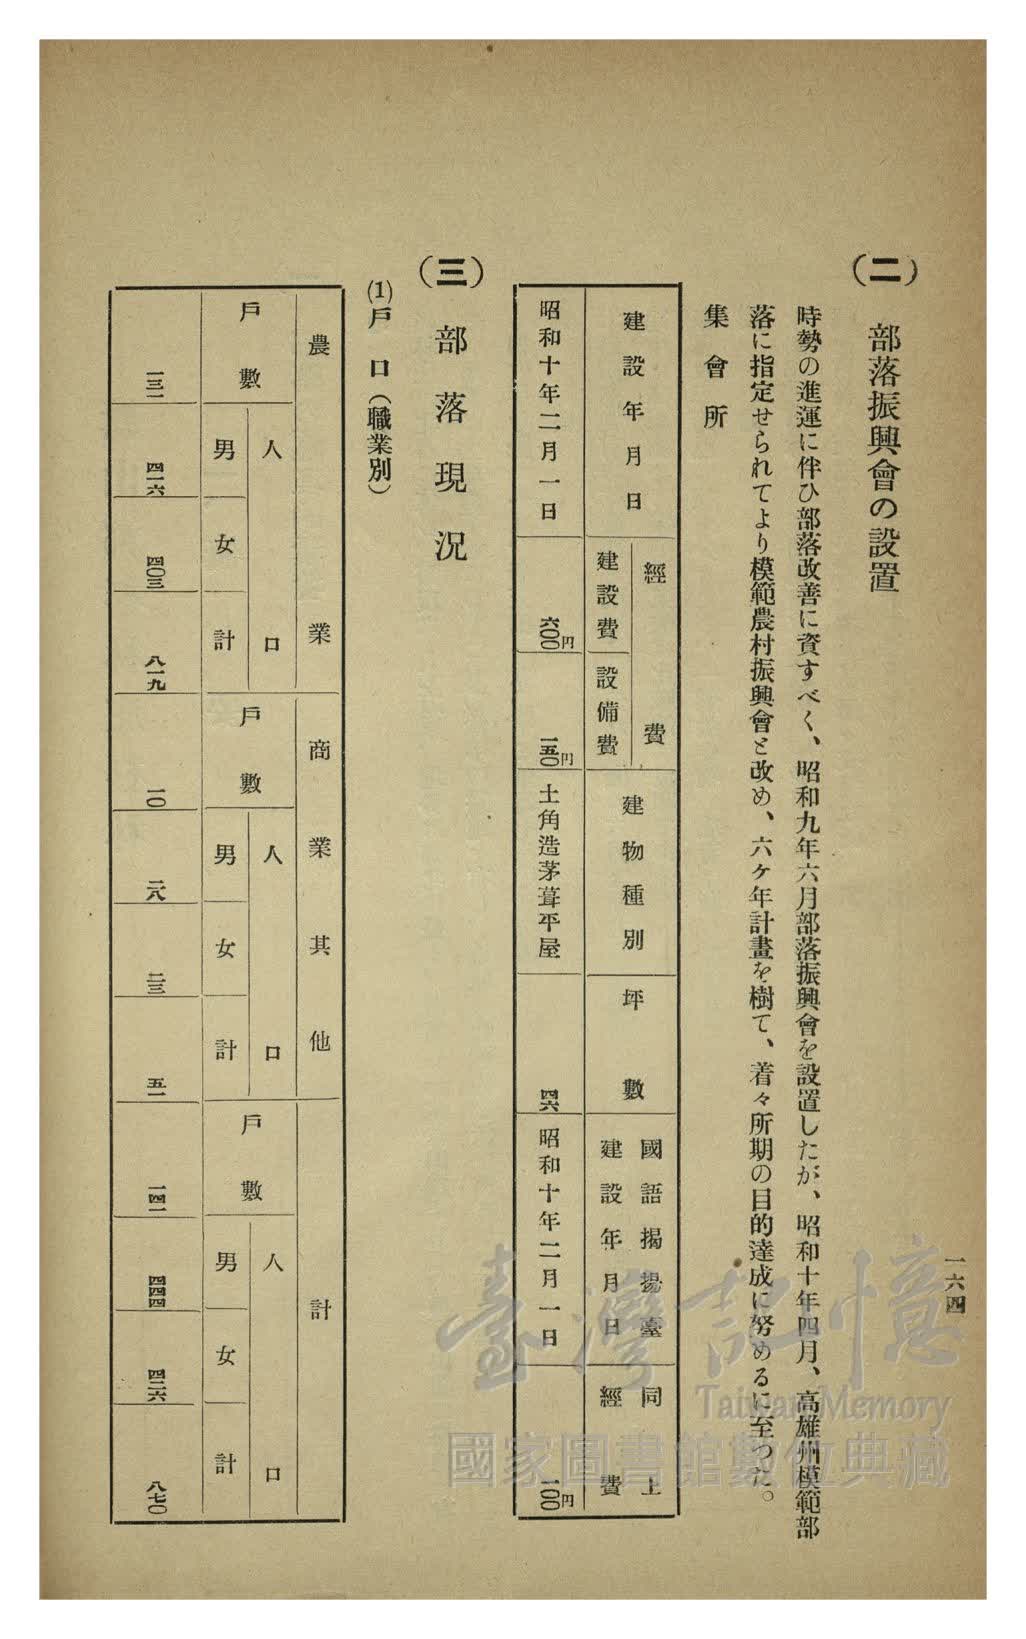 一六四
(二) 部落振興會の設置
時勢の進運に伴ひ部落改善に資すべく、昭和九年六月部落振興會を設置したが、昭和十年四月、高雄州模範部
落に指定せられてより模範農村振興會と改め、六ケ年計畫を樹て、着々所期の目的達成に努めるに至つた。
集會所
建設年月日
經費
建設費
設備費
建物種別
坪數
國語揭揚臺
建設年月日
同上
經費
昭和十年二月一日
六〇〇円
一五〇円
土角造茅葺平屋
四六
昭和十年二月一日
一〇〇円
(三) 部落現況
(1)戶口(職業別)
農業
商業其他
計
戶數
人口
男
女
計
戶數
人口
男
女
計
戶數
人口
男
女
計
一三一
四一六
四〇三
八一九
一〇
二八
二三
五一
一四一
四四四
四二六
八七〇
臺灣記憶
Taiwan Memory
國家圖書館數位典藏